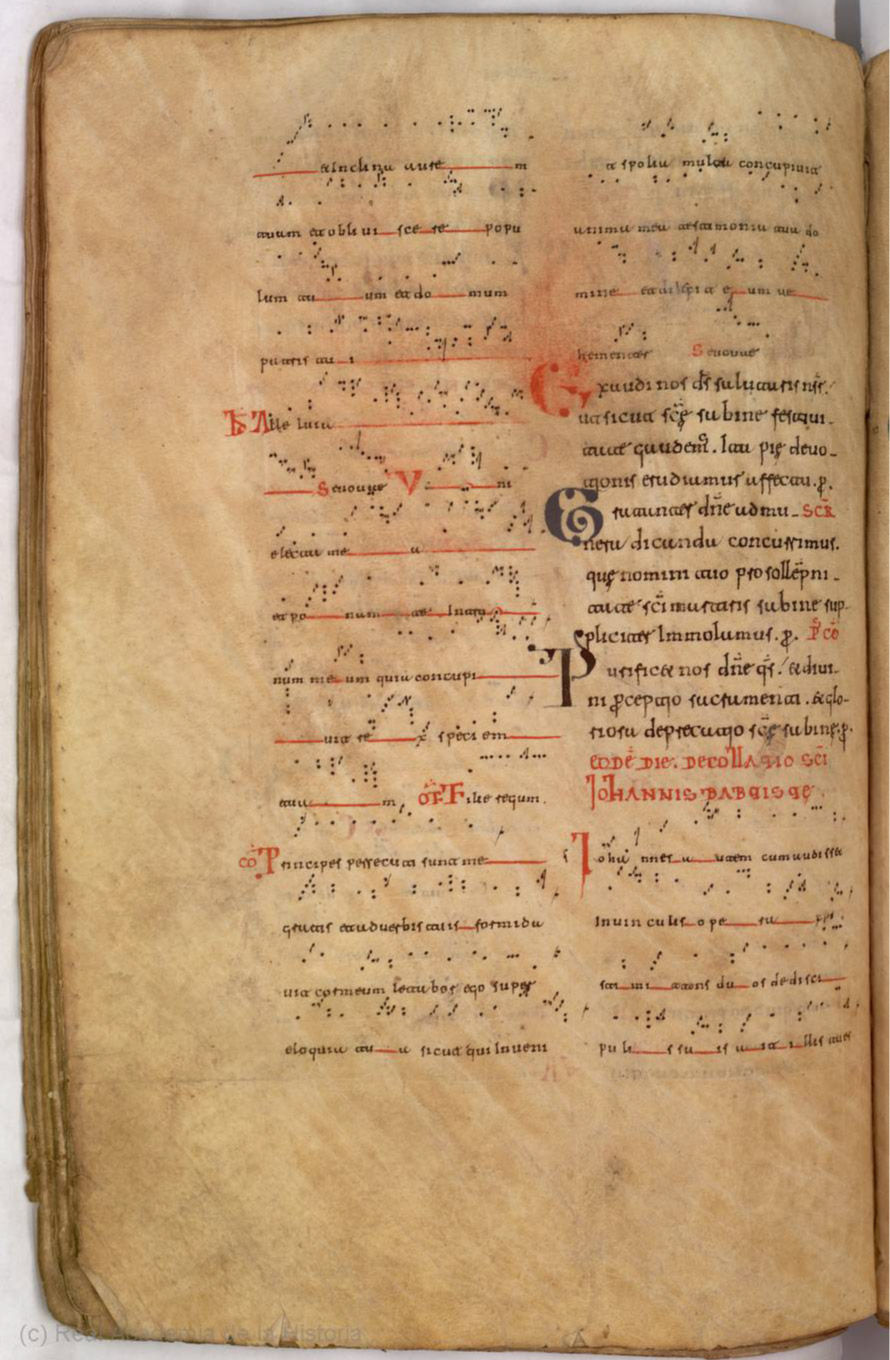 & Inclina aure m
tuam et obli ui sce re popu
lum tu um et do mum
patris tu i
Alle luia
Seuouae V ni
electa me a
et po nam te In tro
num me um quia concupi
uit re x speciem
tua m. OF Filie regum.
CO Principes persecuti sunt me
gratis et a uerbis tuis formida
uit cor meum letabor ego super
eloquia tu a sicut qui Inueni
t spolia multa concupiuit
anima mea testimonia tua do
mine et dilexi e um ue
hementer Seuouae
Exaudi nos ds salutaris nr.
ut sicut sce sabine festiui-
tate gaudem. Ita pie deuo-
tionis erudiamur affectu. p.
Gratantes dne ad mu- SCR
nera dicanda concurrimus.
que nomini tuo pro sollepni-
tate sci martiris sabine sup-
pliciter Immolamus. p. P CO
Purificet nos dne qs. & diui-
ni perceptio sacramenti. & glo-
riosa deprecatio sce sabine. p.
EODE DIE. DECOLLATIO SCI
IOHANNIS BABTISTE
Iohannes autem cum audisset
In uinculis ope ra xpi
mi ttens du os de disci
puli s su is a it illi s tu es
(c) Real Academia de la Historia